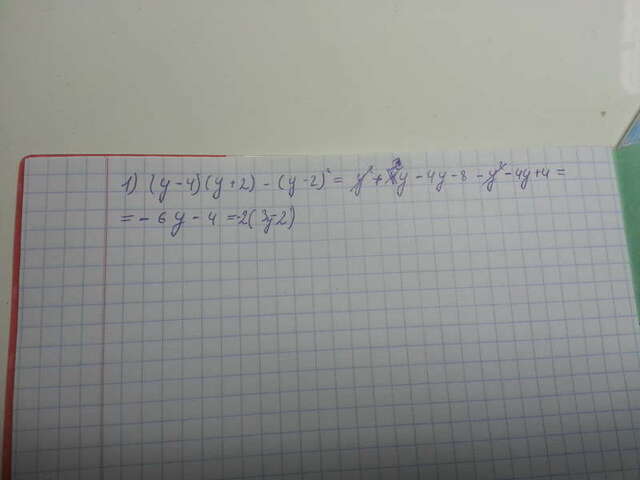 1) (y-4)(y+2) - (y-2)² = y² + 2y - 4y - 8 - y² - 4y + 4 =
= - 6y - 4 = -2(3y-2)